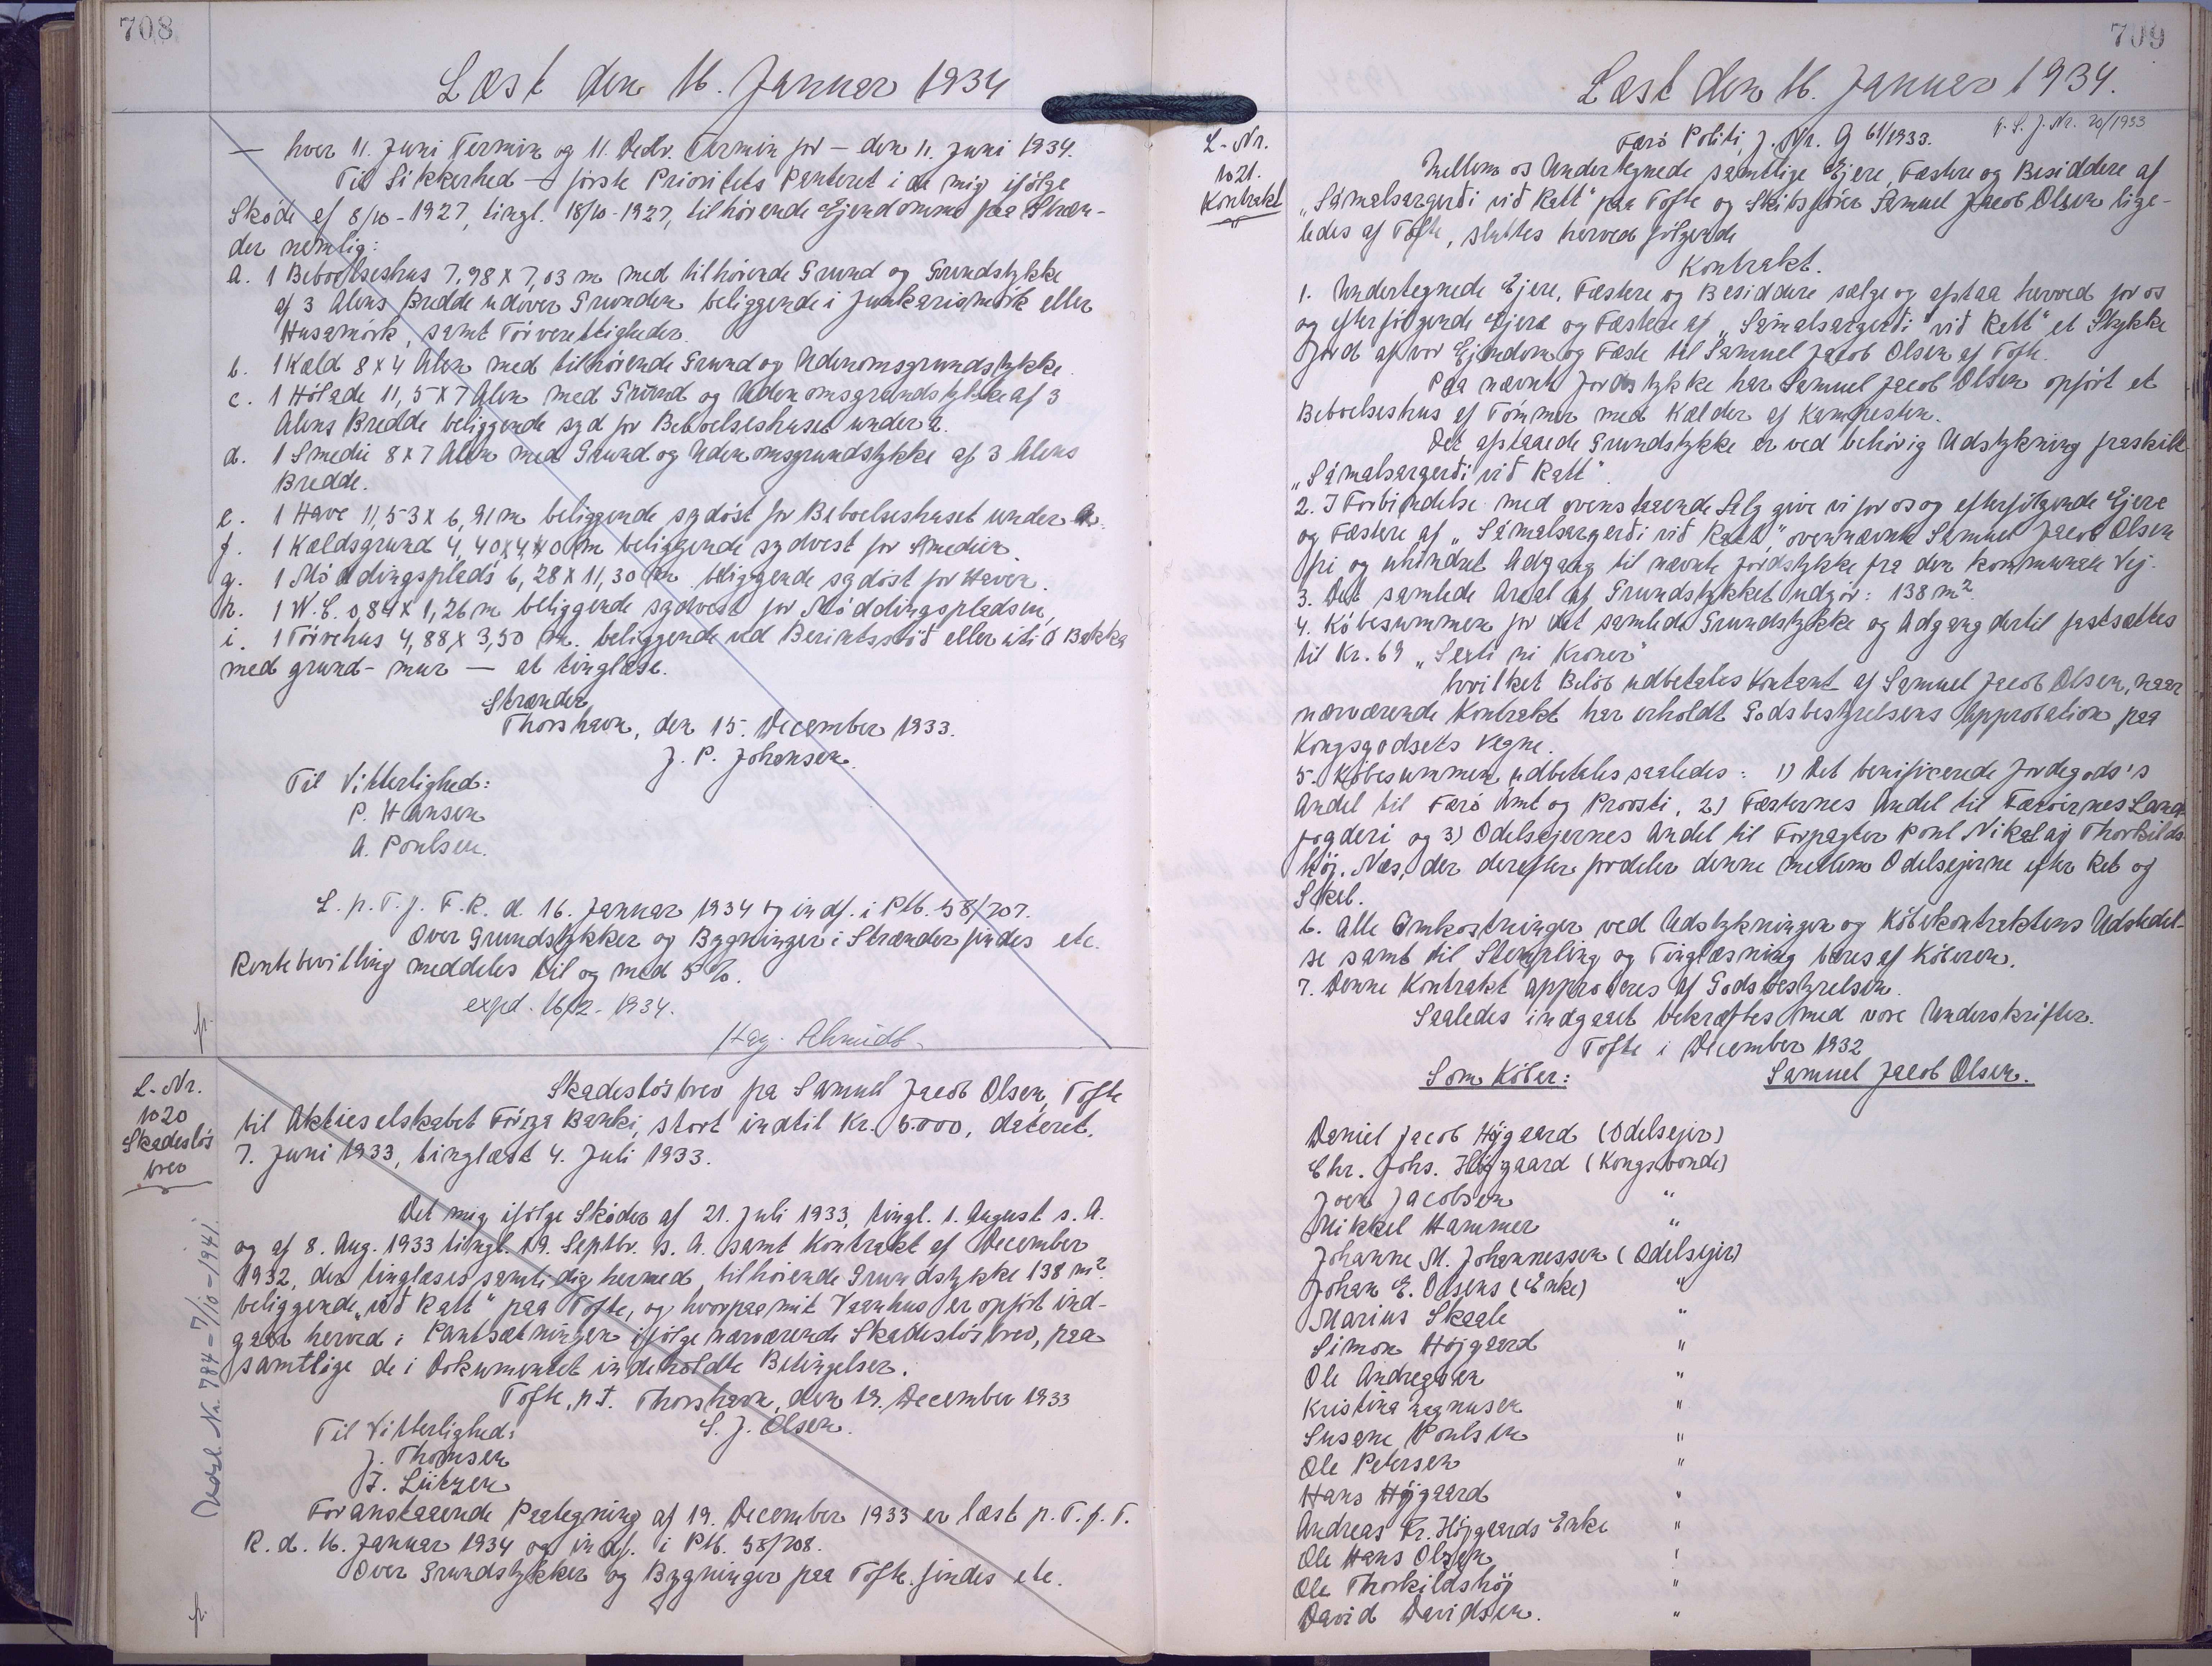 708
Læst den 16. Januar 1934
— hver 11. Juni Termin og 11. Decbr. Termin før — den 11. Juni 1934.
Til Sikkerhed — første Prioritets Panteret i de mig ifølge
Skøde af 8/10-1927, tingl. 18/10-1927, tilhørende Ejendomme paa Stræn-
der nemlig:
a. 1 Beboelseshus 7,98 x 7,03 m med tilhørende Grund og Grundstykke
af 3 Alens Bredde udover Grunden beliggende i Junkarismørk eller
Husamørk, samt Tørverettigheder.
b. 1 Kæld 8 x 4 Alen med tilhørende Grund og Udenomsgrundstykke.
c. 1 Hølade 11,5 x 7 Alen med Grund og Udenomsgrundstykke af 3
Alens Bredde beliggende syd for Beboelseshuset under a.
d. 1 Smedie 8 x 7 Alen med Grund og Udenomsgrundstykke af 3 Alens
Bredde.
e. 1 Have 11,53 x 6,91 m beliggende sydøst for Beboelseshuset under a.
f. 1 Kældsgrund 4,40 x 4,40 m beliggende sydvest for Smedien.
g. 1 Møddingsplads 6,28 x 11,30 m beliggende sydøst for Haven.
h. 1 W.C. 0,84 x 1,26 m beliggende sydvest for Møddingspladsen,
i. 1 Tørvehus 4,88 x 3,50 m. beliggende ved eller úti á Bakka
med grund-mur — at tinglæse.
Strænder
Thorshavn, den 15. December 1933.
J. P. Johansen.
Til Vitterlighed:
P. Hansen
A. Poulsen.
L. p. T. f. F. R. d. 16. Januar 1934 og indf. i Ptb. 58/707.
Over Grundstykker og Bygninger i Strænder findes etc.
Rentebevilling meddeles til og med 5 %.
exped. 16/2-1934.
Hag. Schmidt
fr.
L-Nr.
1020
Skadesløs
brev
Skadesløsbrev fra Samuel Jacob Olsen, Tofte
til Aktieselskabet Føroya Banki, stort indtil Kr. 5.000, dateret.
7. Juni 1933, tinglæst 4. Juli 1933.
Det mig ifølge Skøder af 21. Juli 1933, tingl. 1. August s. A.
og af 8. Aug. 1933 tingl. 19. Septbr. s. A. samt Kontrakt af December
1932, der tinglæses samtidig hermed, tilhørende Grundstykke 138 m²
beliggende „við Rætt" paa Tofte, og hvorpaa mit Vaanhus er opført ind-
gaar herved i Pantsætningen ifølge nærværende Skadesløsbrev, paa
samtlige de i Dokumentet indeholdte Betingelser.
Tofte, p.t. Thorshavn, den 19. December 1933
S. J. Olsen.
Til Vitterlighed:
J. Thomsen
J. Lützen
Foranstaaende Paategning af 19. December 1933 er læst p. T. f. F.
R. d. 16. Januar 1934 og indf. i Ptb. 58/708.
Over Grundstykker og Bygninger paa Tofte findes etc.
fr.
Nr. 784 - 7/10-1941.
709
Læst den 16. Januar 1934.
Færø Politi, J. Nr. G 61/1933.
G. S. J. Nr. 20/1933
L-Nr.
1021.
Kontrakt
Mellem os Undertegnede samtlige Ejere, Fæstere og Besiddere af
„Sámalsargerði við Rætt" paa Tofte og Skibsfører Samuel Jacob Olsen lige-
ledes af Tofte, sluttes herved følgende
Kontrakt.
1. Undertegnede Ejere, Fæstere og Besiddere sælge og afstaa herved for os
og efterfølgende Ejere og Fæstere af „Sámalsargerði við Rætt" et Stykke
Jord af vor Ejendom og Fæste til Samuel Jacob Olsen af Tofte.
Paa nævnte Jordstykke har Samuel Jacob Olsen opført et
Beboelseshus af Tømmer med Kælder af Kampesten.
Det afstaaede Grundstykke er ved behørig Udstykning fraskilt
„Sámalsargerði við Rætt".
2. I Forbindelse med ovenstaaende Salg give vi for os og efterfølgende Ejere
og Fæstere af „Sámalsargerði við Rætt" ovennævnte Samuel Jacob Olsen
fri og uhindret Adgang til nævnte Jordstykke fra den kommunale Vej.
3. Det samlede Areal af Grundstykket udgør: 138 m².
4. Købesummen for det samlede Grundstykke og Adgang dertil fastsættes
til Kr. 69 „Seksti ni Kroner"
hvilket Beløb udbetales kontant af Samuel Jacob Olsen, naar
nærværende Kontrakt har erholdt Godsbestyrelsens Approbation paa
Kongsgodsets Vegne.
5. Købesummen udbetales saaledes: 1) Det beneficerede Jordegods's
Andel til Færø Amt og Provsti, 2) Fæsternes Andel til Færøernes Land-
fogderi og 3) Odelsejernes Andel til Forpagter Poul Nikolaj Thorkilds-
høj. Næs, der derefter fordeler denne mellem Odelsejerne efter Ret og
Skel.
6. Alle Omkostninger ved Udstykningen og Købekontraktens Udstedel-
se samt til Stempling og Tinglæsning bæres af Køberen.
7. Denne Kontrakt approberes af Godsbestyrelsen.
Saaledes indgaaet bekræftes med vore Underskrifter.
Tofte i December 1932
Som Køber: Samuel Jacob Olsen.
Daniel Jacob Højgaard (Odelsejer)
Chr. Johs. Højgaard (Kongsbonde)
Joen Jacobsen "
Mikkel Hammer "
Johanne M. Johannessen (Odelsejer)
Johan E. Olsens (Enke) "
Marius Skaale "
Simon Højgaard "
Ole Andreasen "
Kristina Magnusen "
Susanne Poulsen "
Ole Petersen "
Hans Højgaard "
Andreas Fr. Højgaards Enke "
Ole Hans Olsen "
Ole Thorkildshøj "
David Davidsen. "